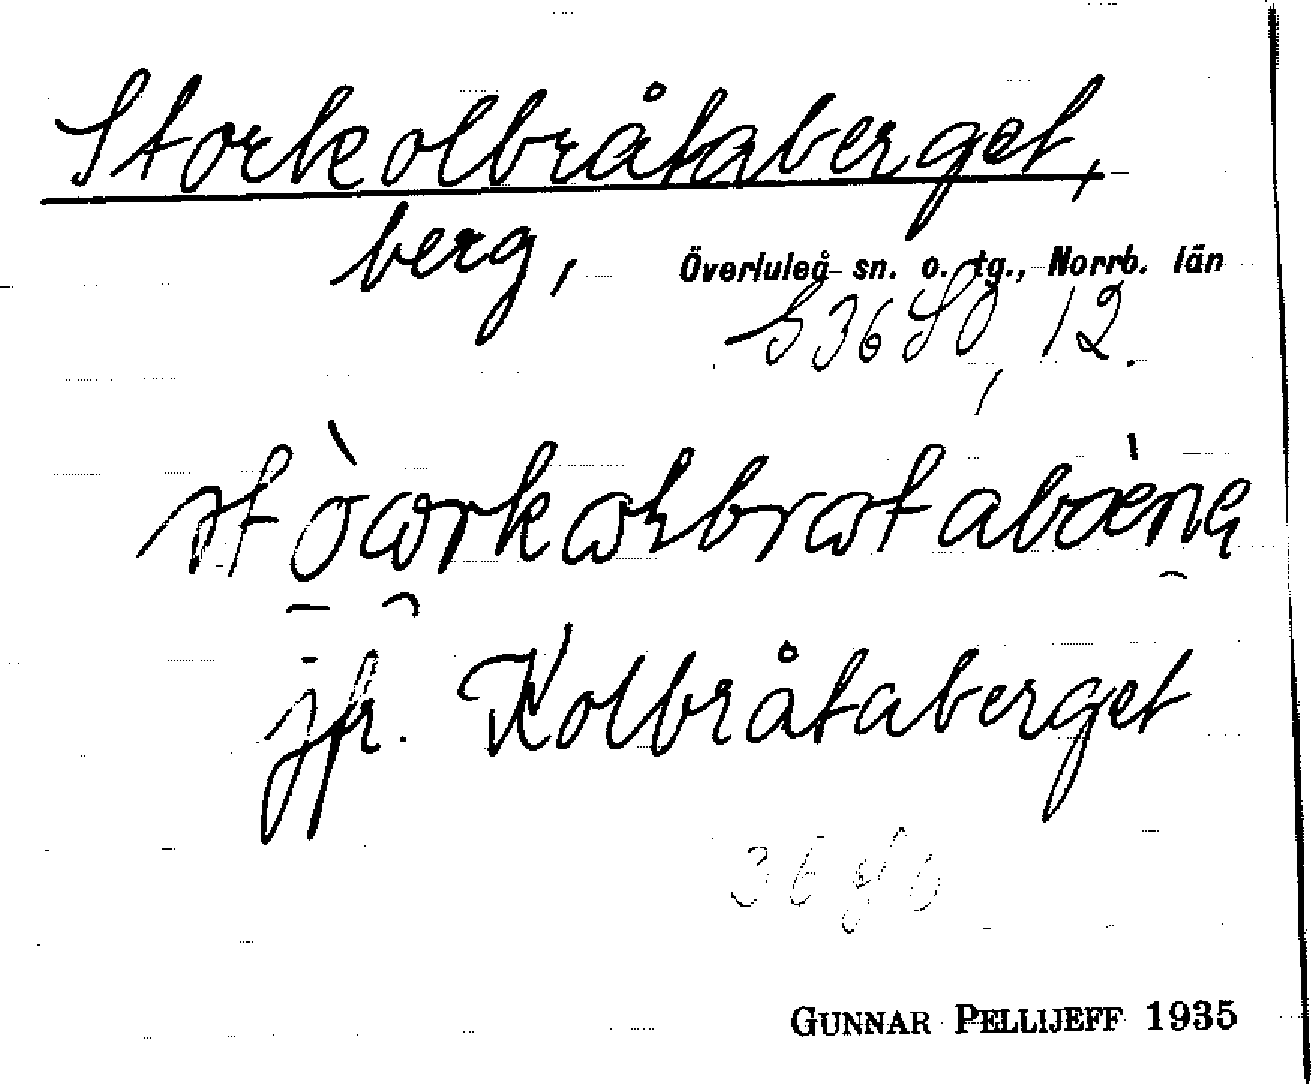 Storkolbråtaberget,
berg, Överluleå sn. o. tg., Norrb. län
S36SO, 12.
jfr. Kolbråtaberget
36 SO
GUNNAR PELLIJEFF 1935